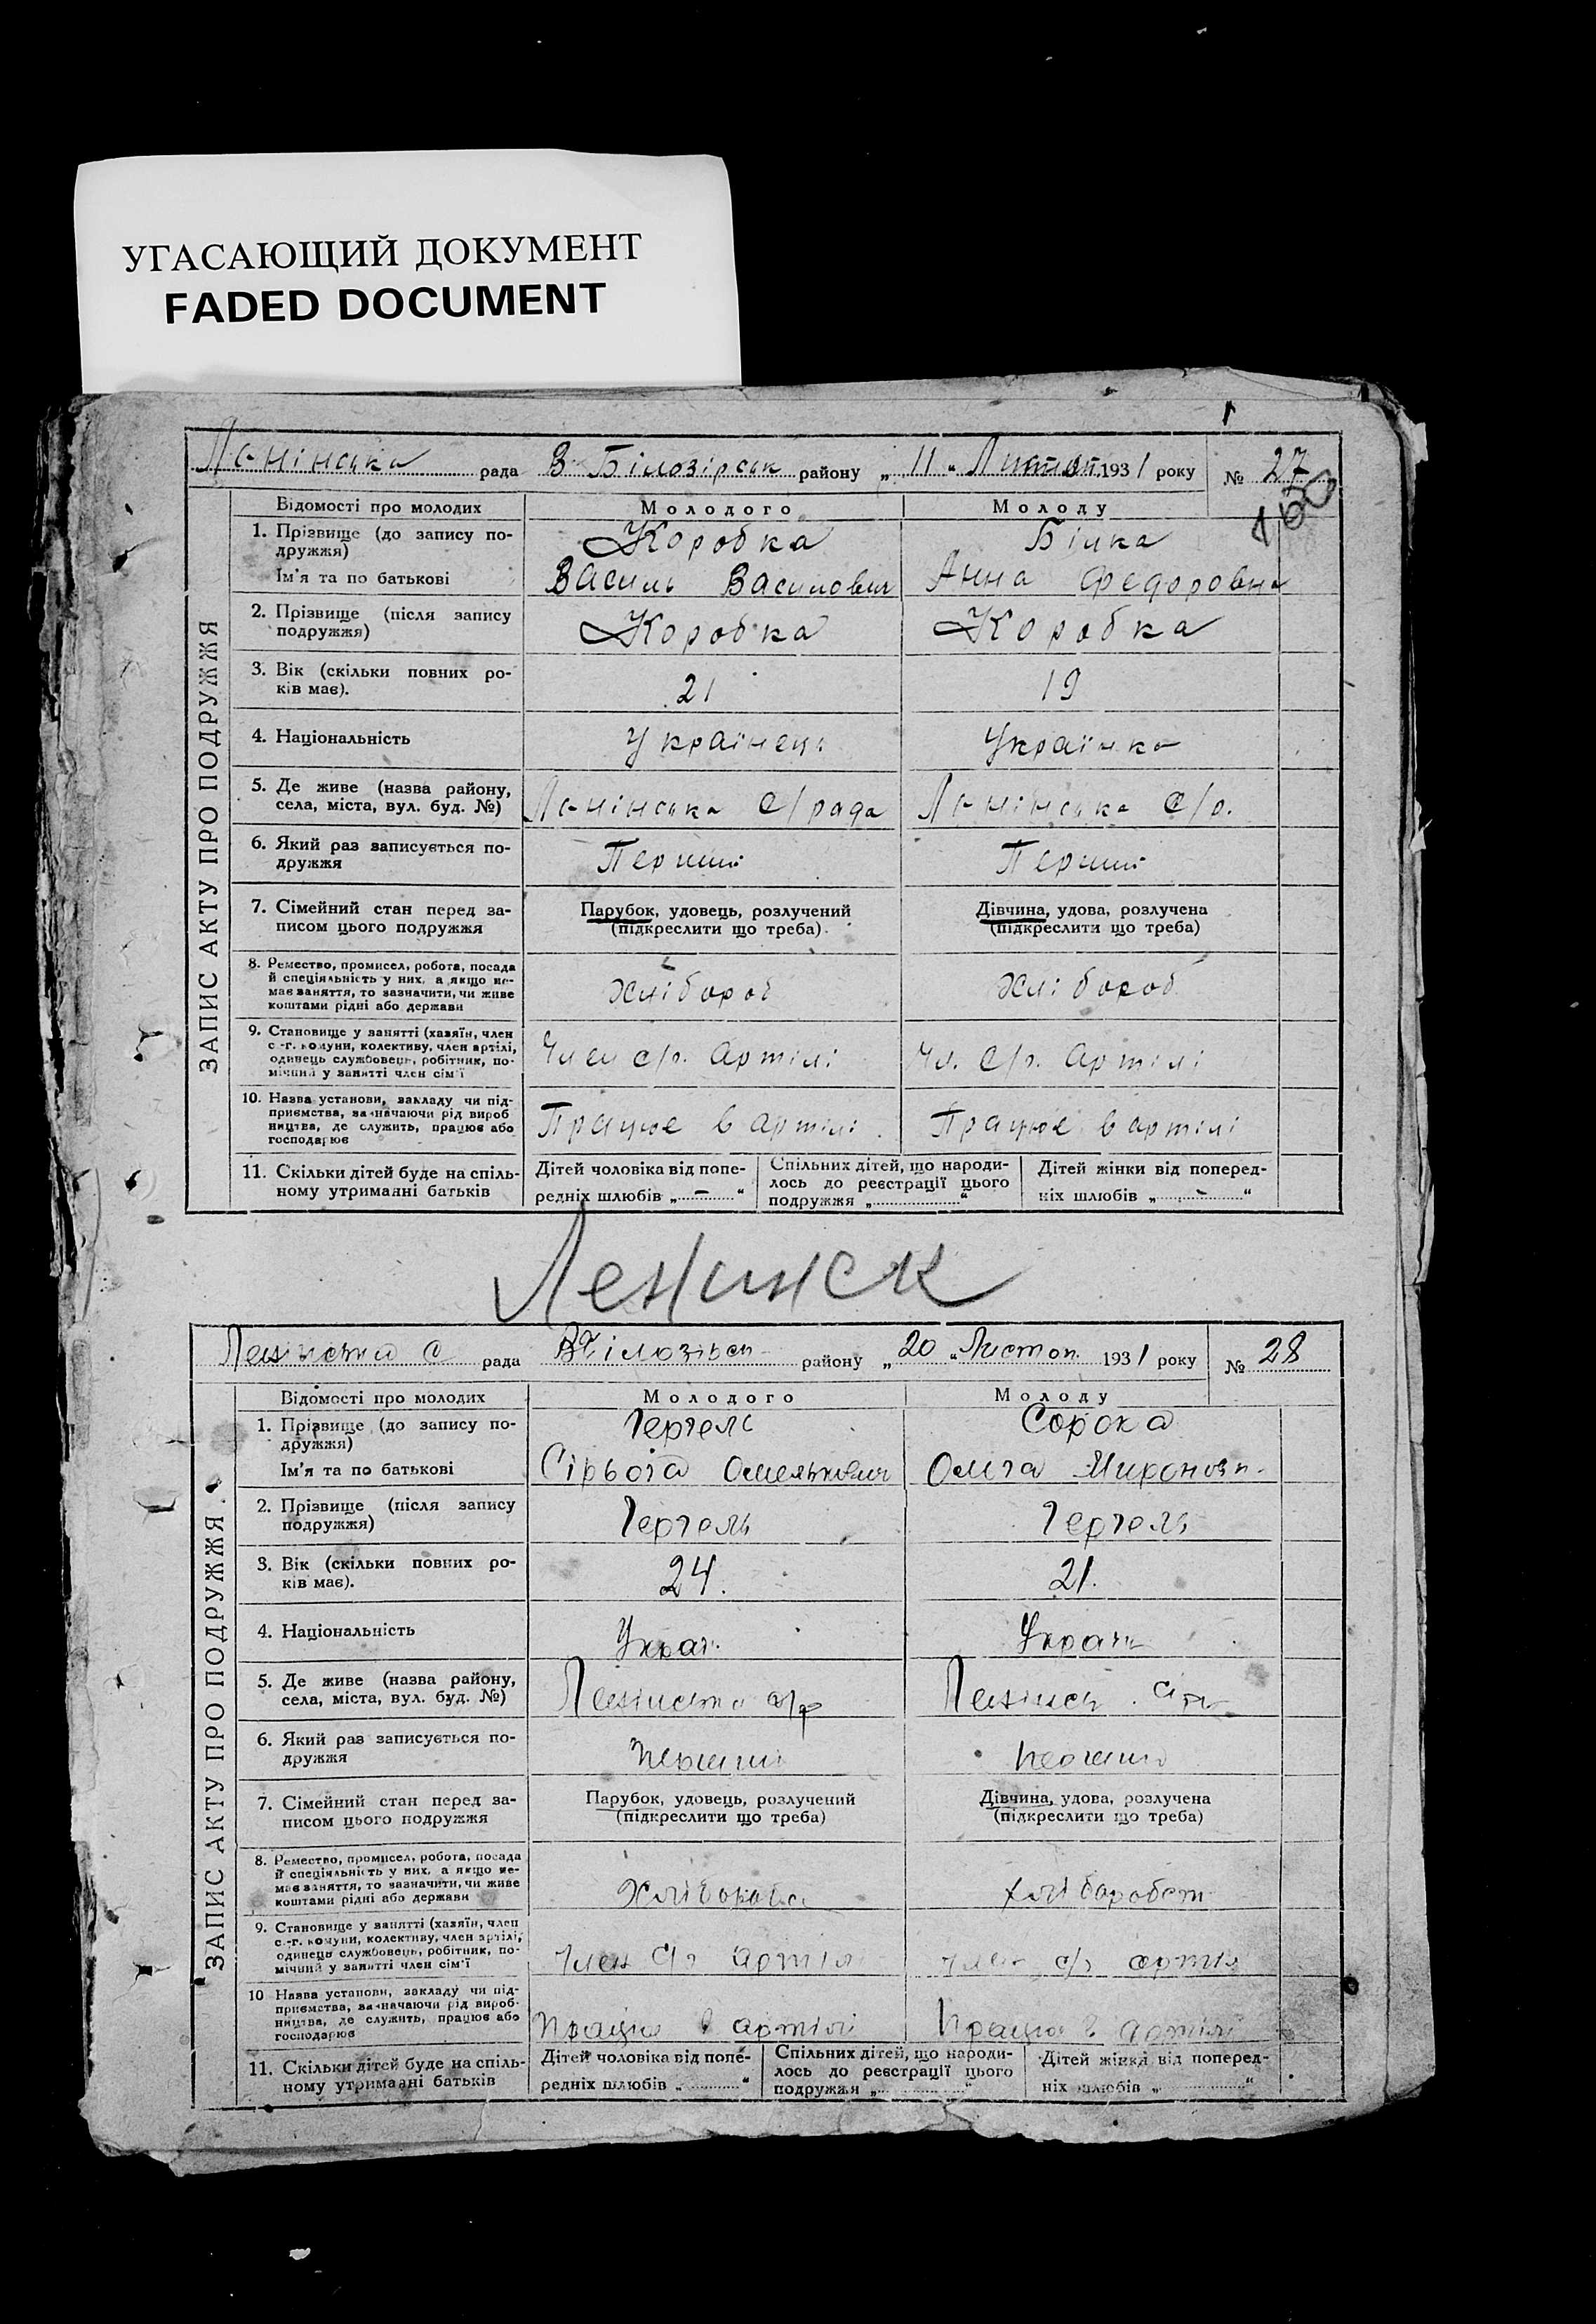 УГАСАЮЩИЙ ДОКУМЕНТ
FADED DOCUMENT
Ленінська рада В. Білозірськ району „ 11 “ Листоп. 1931 року № 27
160
ЗАПИС АКТУ ПРО ПОДРУЖЖЯ
Відомості про молодих Молодого Молоду
1. Прізвище (до запису по- Коробка Білка
дружжя)
Ім’я та по батькові Василь Василович Анна Федоровна
2. Прізвище (після запису Коробка Коробка
подружжя)
3. Вік (скільки повних ро- 21 19
ків має).
4. Національність Українець Українка
5. Де живе (назва району,
села, міста, вул. буд. №) Ленінська с/рада Ленінська с/р.
6. Який раз записується по- Перший Перший
дружжя
7. Сімейний стан перед за- Парубок, удовець, розлучений Дівчина, удова, розлучена
писом цього подружжя (підкреслити що треба) (підкреслити що треба)
8. Ремество, промисел, робота, посада
й спеціяльність у них, а якщо не-
має заняття, то зазначити, чи живе Хлібороб Хлібороб
коштами рідні або держави
9. Становище у занятті (хазяїн, член
с.-г. комуни, колективу, член артілі, Член с/г. артілі Чл. с/г. артілі
одинець службовець, робітник, по-
мічний у занятті член сім’ї
10. Назва установи, закладу чи під-
приємства, зазначаючи рід вироб
ництва, де служить, працює або Працює в артілі Працює в артілі
господарює
11. Скільки дітей буде на спіль- Дітей чоловіка від попе- Спільних дітей, що народи- Дітей жінки від поперед-
ному утриманні батьків редніх шлюбів „ – “ лось до реєстрації цього ніх шлюбів „ – “
подружжя „ “
Ленинск
рада району „ 20 “ Листоп. 1931 року № 28
ЗАПИС АКТУ ПРО ПОДРУЖЖЯ
Відомості про молодих Молодого Молоду
1. Прізвище (до запису по- Гергель Сорока
дружжя)
Ім’я та по батькові Сірьога Омелькович Ольга Мироновн.
2. Прізвище (після запису Гергель Гергель
подружжя)
3. Вік (скільки повних ро- 24. 21.
ків має).
4. Національність Украї. Україн
5. Де живе (назва району,
села, міста, вул. буд. №) Ленінськ
6. Який раз записується по- перший перший
дружжя
7. Сімейний стан перед за- Парубок, удовець, розлучений Дівчина, удова, розлучена
писом цього подружжя (підкреслити що треба) (підкреслити що треба)
8. Ремество, промисел, робота, посада
й спеціяльність у них, а якщо не-
має заняття, то зазначити, чи живе
коштами рідні або держави
9. Становище у занятті (хазяїн, член
с.-г. комуни, колективу, член артілі,
одинець службовець, робітник, по- Член с/г артіл член с/г артіл
мічний у занятті член сім’ї
10 Назва установи, закладу чи під-
приємства, зазначаючи рід вироб-
ництва, де служить, працює або в артілі в артілі
господарює
11. Скільки дітей буде на спіль- Дітей чоловіка від попе- Спільних дітей, що народи- Дітей жінки від поперед-
ному утриманні батьків редніх шлюбів „ “ лось до реєстрації цього ніх шлюбів „ “
подружжя „ “